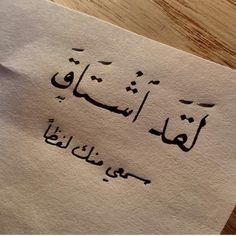 لَقَد أشْتَاقَ
سمعي منك لفظاً